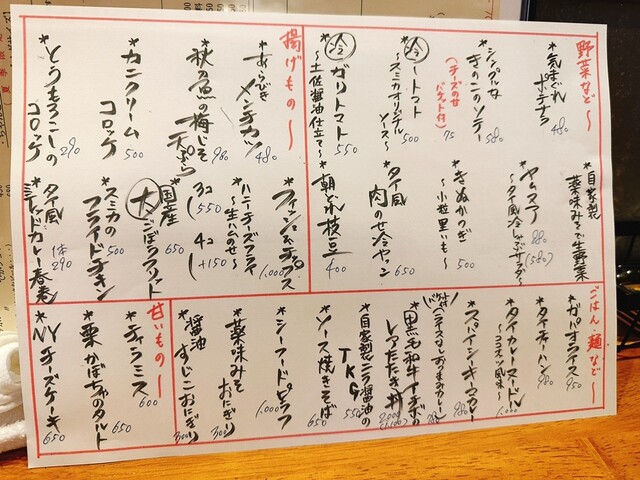 野菜など〜
*気まぐれ
ポテサラ 480
*シンプルな
きのこのソテー 580
(チーズのせ
バケット付) 75
*冷トマト
〜スミカオリジナル
ソース〜 500
*冷ガリトマト
〜土佐醤油仕立て〜 550
*自家製
薬味みそで生野菜
*ヤムヌア 880
〜タイ風冷しゃぶサラダ〜 (580)
*きぬかつぎ
〜小粒里いも〜 500
*タイ風
肉のせ冷ヤッコ 650
*朝どれ枝豆 400
揚げもの〜
*あらびき
メンチカツ 480
*秋の魚の梅じそ
天ぷら 980
*カニクリーム
コロッケ 500
*とうもろこしの
コロッケ 290
*フィッシュ&チップス 1,000
*ハニーチーズフライ
〜生ハムのせ〜
3コ 550
4コ +150
*国産
大ごぼうフリット 650
*スミカの
フライドチキン 500
*タイ風
レッドカレー春巻 1本 290
ごはん・麺など〜
*ガパオライス 950
*タイチャーハン 980
*タイカレーヌードル
〜ココナツ風味〜 1,000
*スパイシーキーマカレー 980
(ライスなしおつまみカレー) 780
*黒毛和牛イチボの
レアたたき丼 2,000
*自家製ニラ醤油の
TKG 550
*ソース焼きそば 650
*シーフードピラフ 1,000
*薬味みそ
おにぎり 300
*醤油
すじこおにぎり 300
甘いもの〜
*ティラミス 600
*栗かぼちゃのタルト 650
*NYチーズケーキ 650